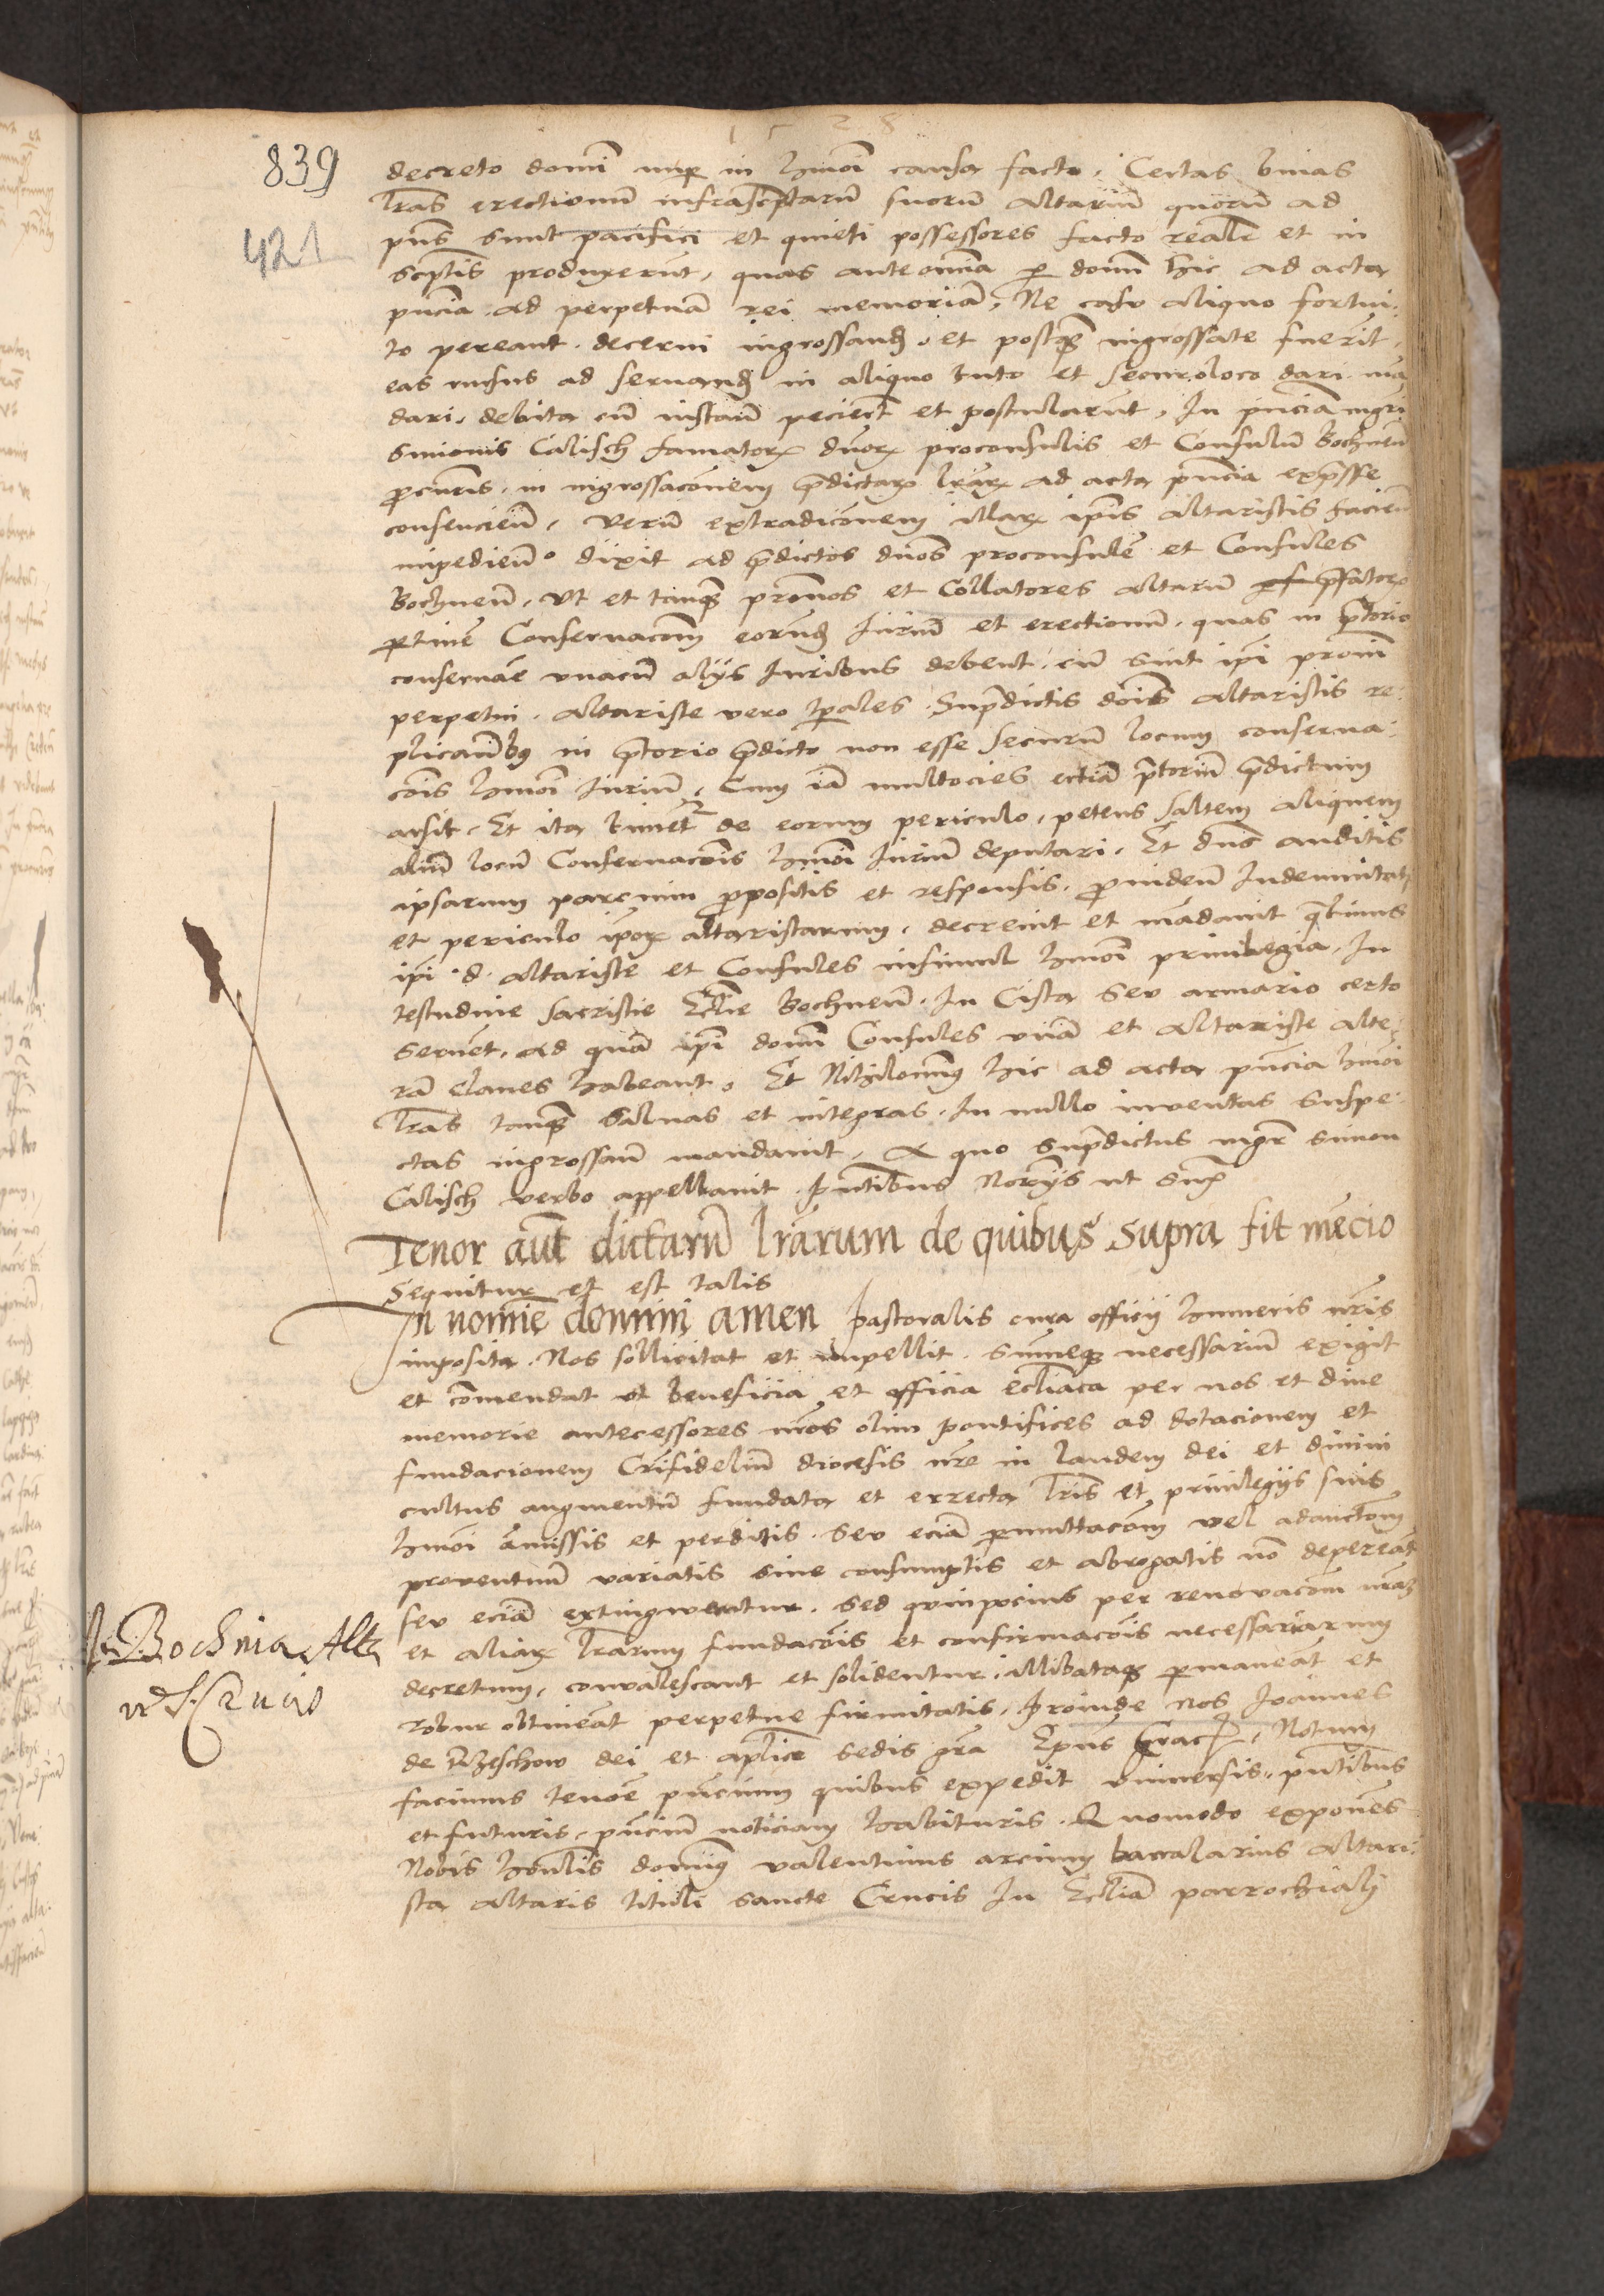 1528
839
421
decreto domi nup in hmoi causa facto. Certas binas
lras erectionu infrascptaru suoru altariu quoru ad
pns sunt pacifici et quieti possessores facto reali et in
scptis produxerunt, quas ante omia p dnm hic ad acta
pncia ad perpetua rei memoria, Ne casu aliquo fortui
to pereant. decerni ingrossand, et postq ingrossate fuerit,
eas rursus ad servand in aliquo tuto et securo loco dari man
dari. debita cu instan pecierut et postularut, In pncia mgri
Simonis Calisch famatorz dnorz proconsulis et Consulu Bochnen
pcuris. in ingrossaconem pdictarz lrarz ad acta pncia expsse
consencien, Veru extradiconem illarz ipis altaristis facien
impedien. dixit ad pdictos dnos proconsule et Consules
Bochnen, Vt et tanq pronos et Collatores altaru pfatorz
ptinē Conservacom eorund Juriu et erectionu, quas in ptorio
conservare vnacu alijs Juribus debent, cu sint ipi proni
perpetui. altariste vero tpales. Supdictis dnis altaristis re
plicantibus in ptorio pdicto non esse securu locum conserva
cois hmoi Juriu, Cum ia multocies ecia ptoriu pdictum
arsit. Et ita timet de eorum periculo, petens saltem aliquem
aliu locu Conservacois hmoi Juriu deputari. Et dns auditis
ipsarum parcium ppositis et responsis. pviden Indemnitati
et periculo ipoz altaristarum, decrevit et mandavit qtinus
ipi d. altariste et Consules insimul hmoi privilegia, In
testudine sacristie Eclie Bochnen. In Cista seu armario certo
servent, ad qua ipi domi Consules vna et altariste alte
ra claves habeant. Et Nihilominus hic ad acta pncia hmoi
lras tanq salvas et integras. In nullo inventas suspe
ctas ingrossari mandavit, A quo supdictus mgr Simon
Calisch verbo appellavit. pntibus Norijs ut supra
Tenor aut dictaru lrarum de quibus supra fit mecio
Sequitur et est talis
In nomie domini amen Pastoralis cura officij humeris nris
imposita. Nos sollicitat et impellit. Sumeq necessariu exigit
et comendat ut beneficia et officia ecliaca per nos et dive
memorie antecessores nros olim pontifices ad dotacionem et
fundacionem Crifideliu diocesis nre in laudem dei et divini
cultus augmentu fundata et errecta lris et privilegijs suis
hmoi amissis et perditis. seu ecia pmuttacom vel adauctom
proventuu variatis sive consumptis et abrogatis no depereat
seu ecia extingwentur. sed quinpocius per renovacom nraz
et aliarz lrarum fundacois et confirmacois necessariarum
decretum, convalescant et solidentur, illibataq pmaneat et
robur obtineat perpetue firmitatis. Proinde nos Joannes
de Rzeschow dei et aplice sedis gra Epus Crac. Notum
facimus tenore pncium quibus expedit universis. pntibus
et futuris. pnciu noticiam habituris. Quomodo exponens
Nobis honlis domius valentinus arcium baccalarius altari
sta altaris tituli sancte Crucis In Eclia parrochiali
Bochnia Alta
S. Crucis